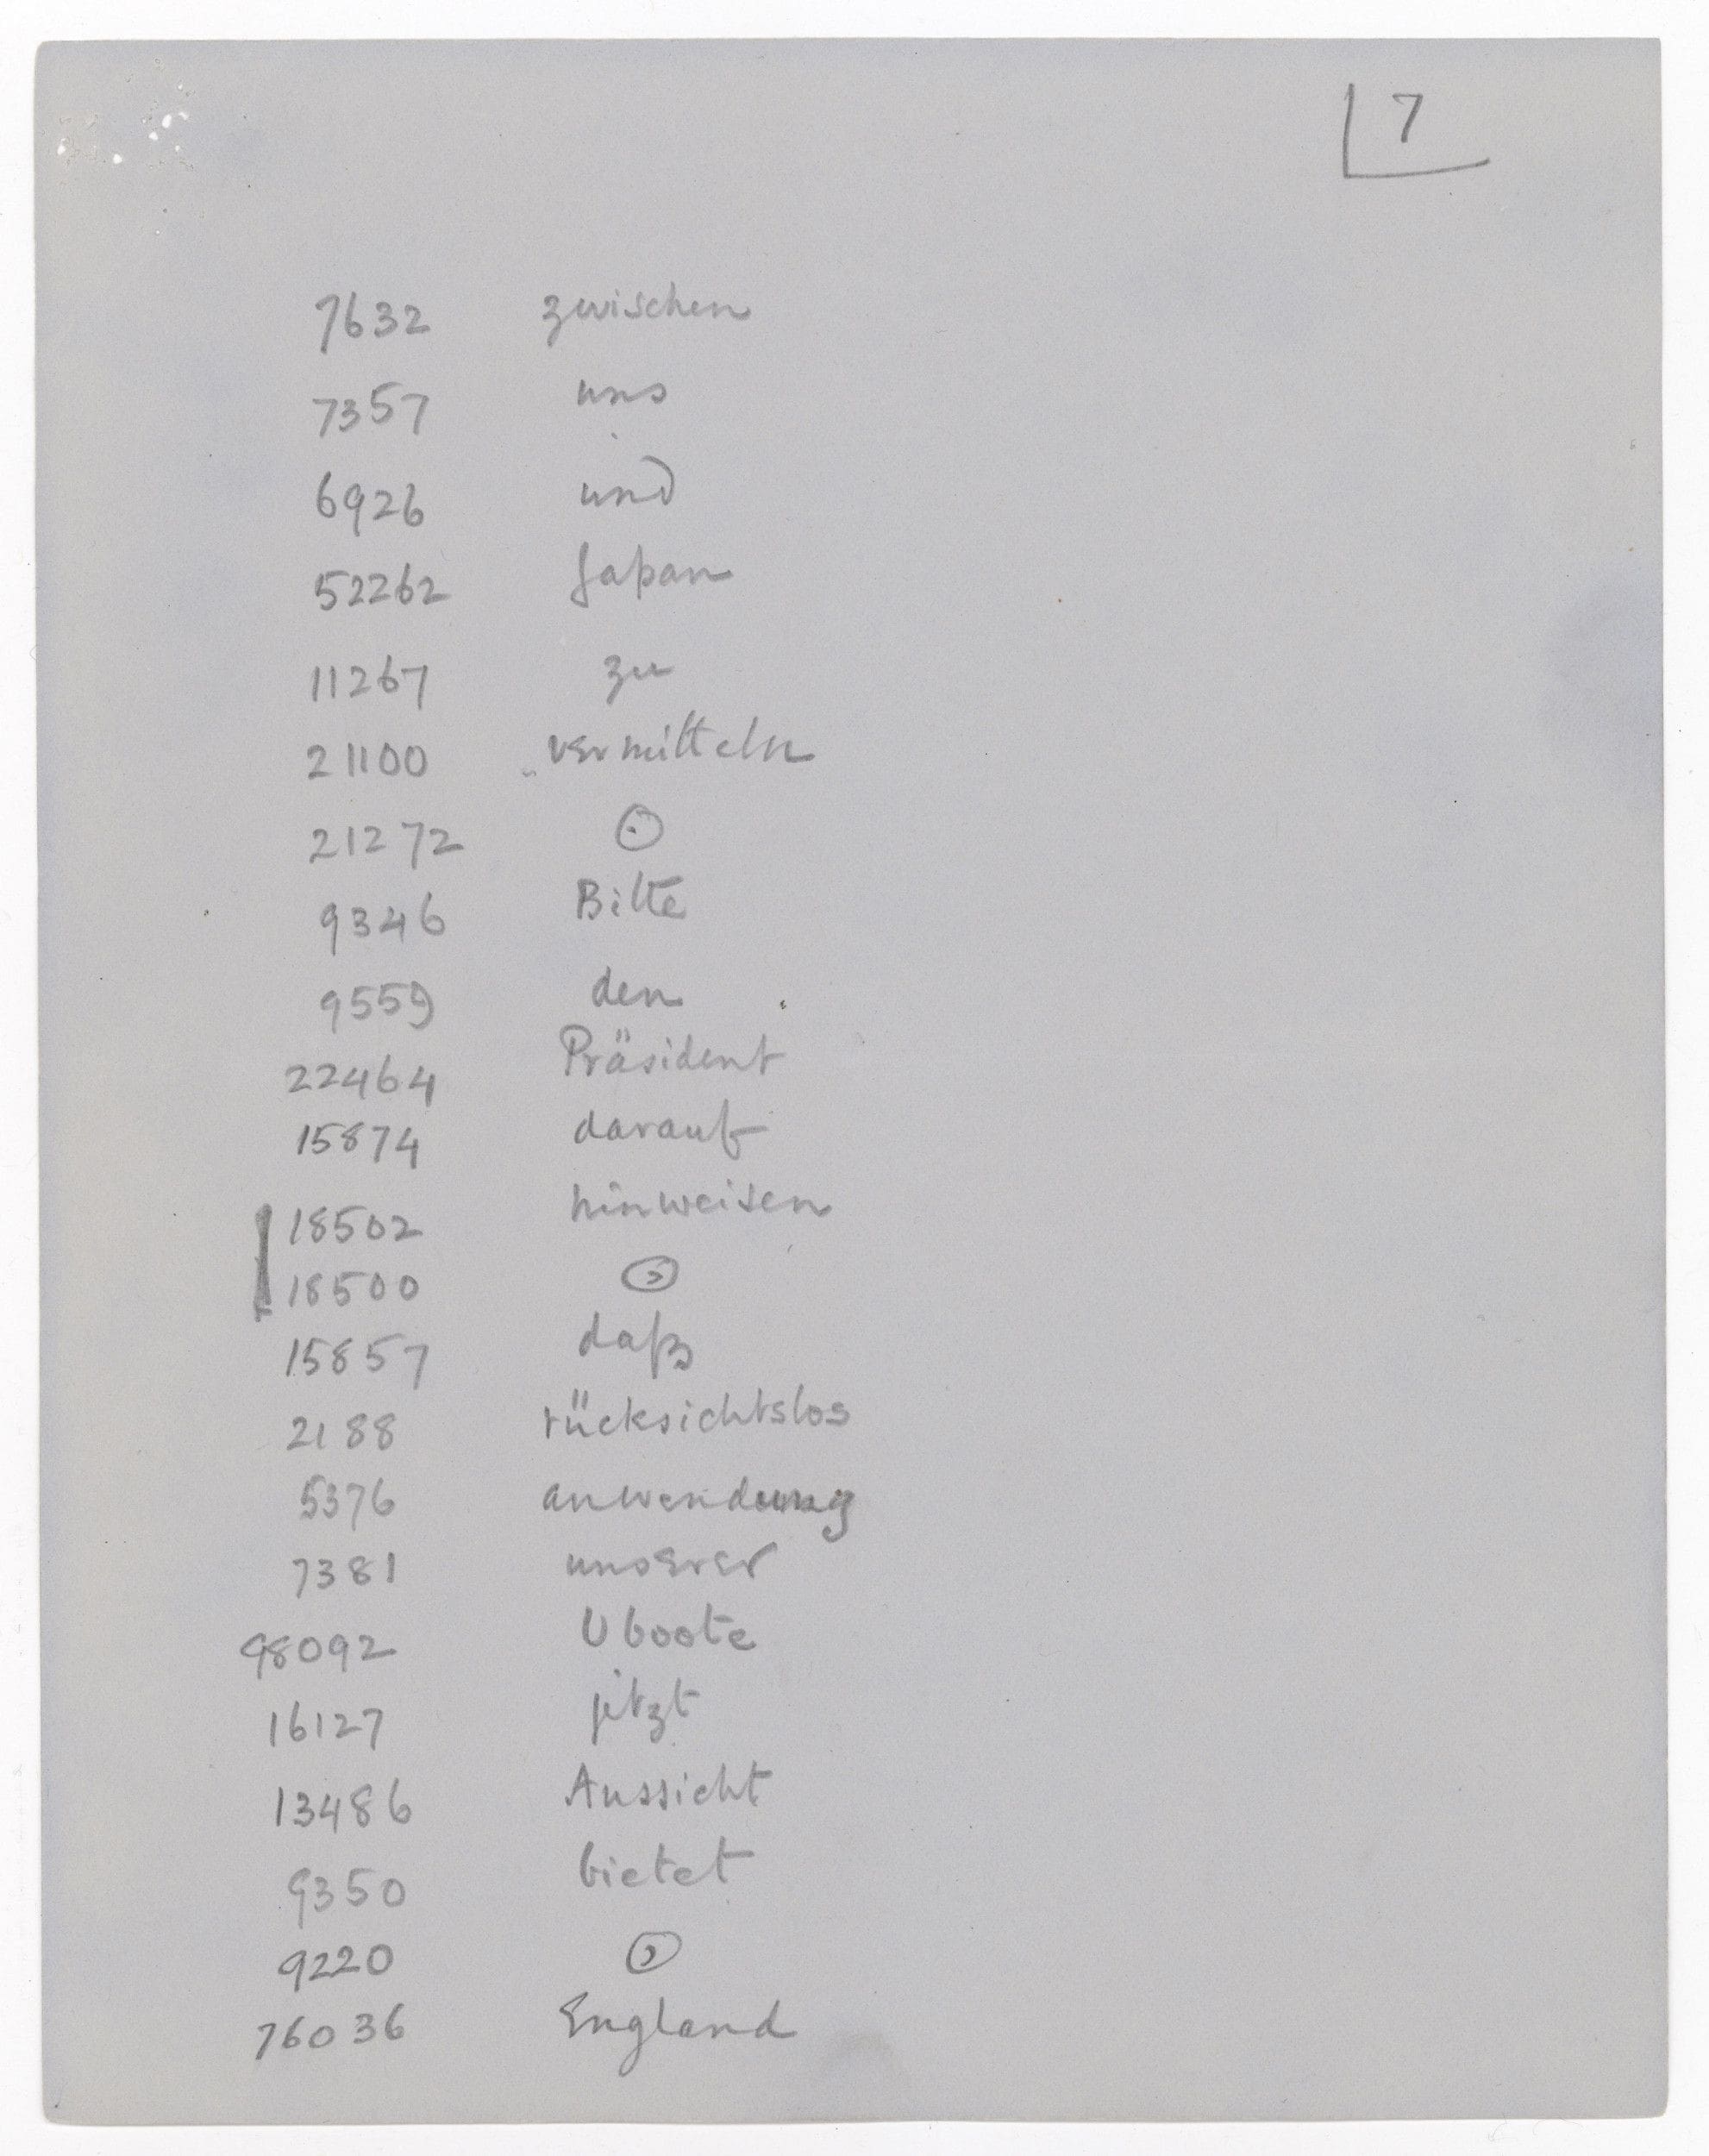 7
7632 zwischen
7357 uns
6926 und
52262 Japan
11267 zu
21100 vermitteln
21272 ⊙
9346 Bitte
9559 den
22464 Präsident
15874 darauf
18502 hinweisen
18500 ,
15857 daß
2188 rücksichtslos
5376 anwendung
7381 unserer
98092 Uboote
16127 jetzt
13486 Aussicht
9350 bietet
9220 ,
76036 England